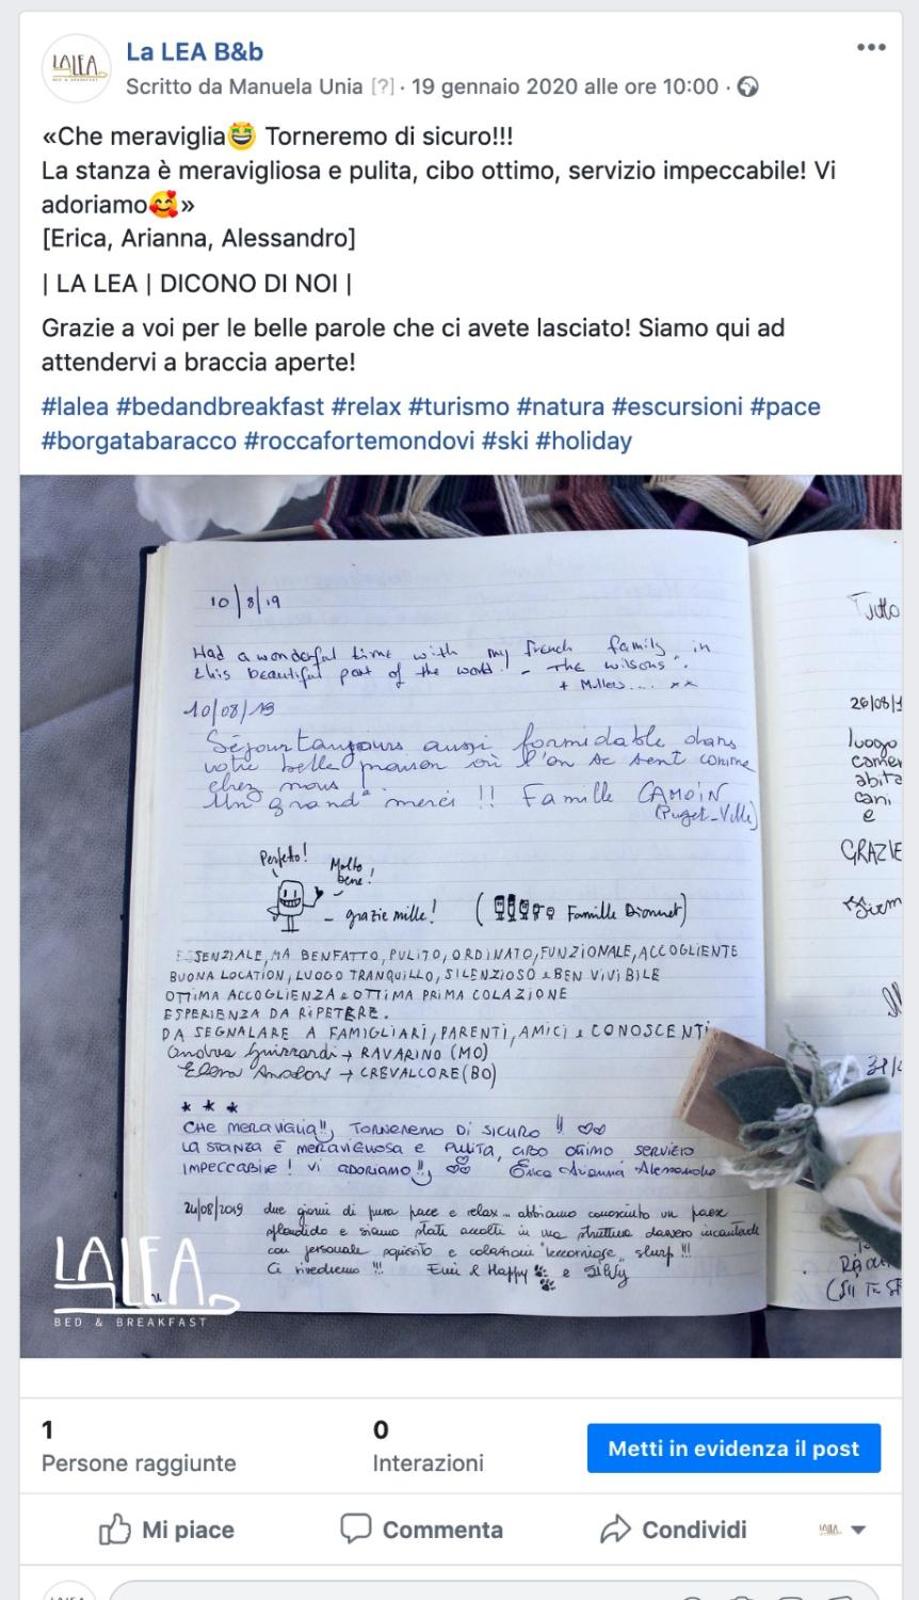 LALEA
BED & BREAKFAST
La LEA B&b
Scritto da Manuela Unia [?] · 19 gennaio 2020 alle ore 10:00 ·
«Che meraviglia🤩 Torneremo di sicuro!!!
La stanza è meravigliosa e pulita, cibo ottimo, servizio impeccabile! Vi
adoriamo🥰»
[Erica, Arianna, Alessandro]
| LA LEA | DICONO DI NOI |
Grazie a voi per le belle parole che ci avete lasciato! Siamo qui ad
attendervi a braccia aperte!
#lalea #bedandbreakfast #relax #turismo #natura #escursioni #pace
#borgatabaracco #roccafortemondovi #ski #holiday
10/8/19
Had a wonderful time with my french family, in
this beautiful part of the world! - The Wilsons.
+ Mullers.... xx
10/08/19
Séjour toujours aussi formidable dans
votre belle maison où l'on se sent comme
chez nous!
Un grand merci !! Famille CAMOIN
(Puget-Ville)
Perfetto!
Molto
bene!
- grazie mille! ( Famille Dionnet)
ESSENZIALE, MA BENFATTO, PULITO, ORDINATO, FUNZIONALE, ACCOGLIENTE
BUONA LOCATION, LUOGO TRANQUILLO, SILENZIOSO E BEN VIVIBILE
OTTIMA ACCOGLIENZA E OTTIMA PRIMA COLAZIONE
ESPERIENZA DA RIPETERE.
DA SEGNALARE A FAMIGLIARI, PARENTI, AMICI E CONOSCENTI
Andrea → RAVARINO (MO)
Elena → CREVALCORE (BO)
* * *
CHE MERAVIGLIA!! TORNEREMO DI SICURO !! ♡♡
LA STANZA È MERAVIGLIOSA E PULITA, CIBO OTTIMO SERVIZIO
IMPECCABILE ! VI ADORIAMO!! ♡♡ Erica Arianna Alessandro
24/08/2019 due giorni di pura pace e relax... abbiamo conosciuto un paese
splendido e siamo stati accolti in una struttura davvero incantevole
con personale squisito e colazioni "leccornigse" slurp !!!
Ci rivedremo !!! Emi & Happy e Silvy
Tutto
26/08/1
luogo
camer
abita
cani
e
GRAZIE
31/
LALEA
BED & BREAKFAST
1
Persone raggiunte
0
Interazioni
Metti in evidenza il post
Mi piace
Commenta
Condividi